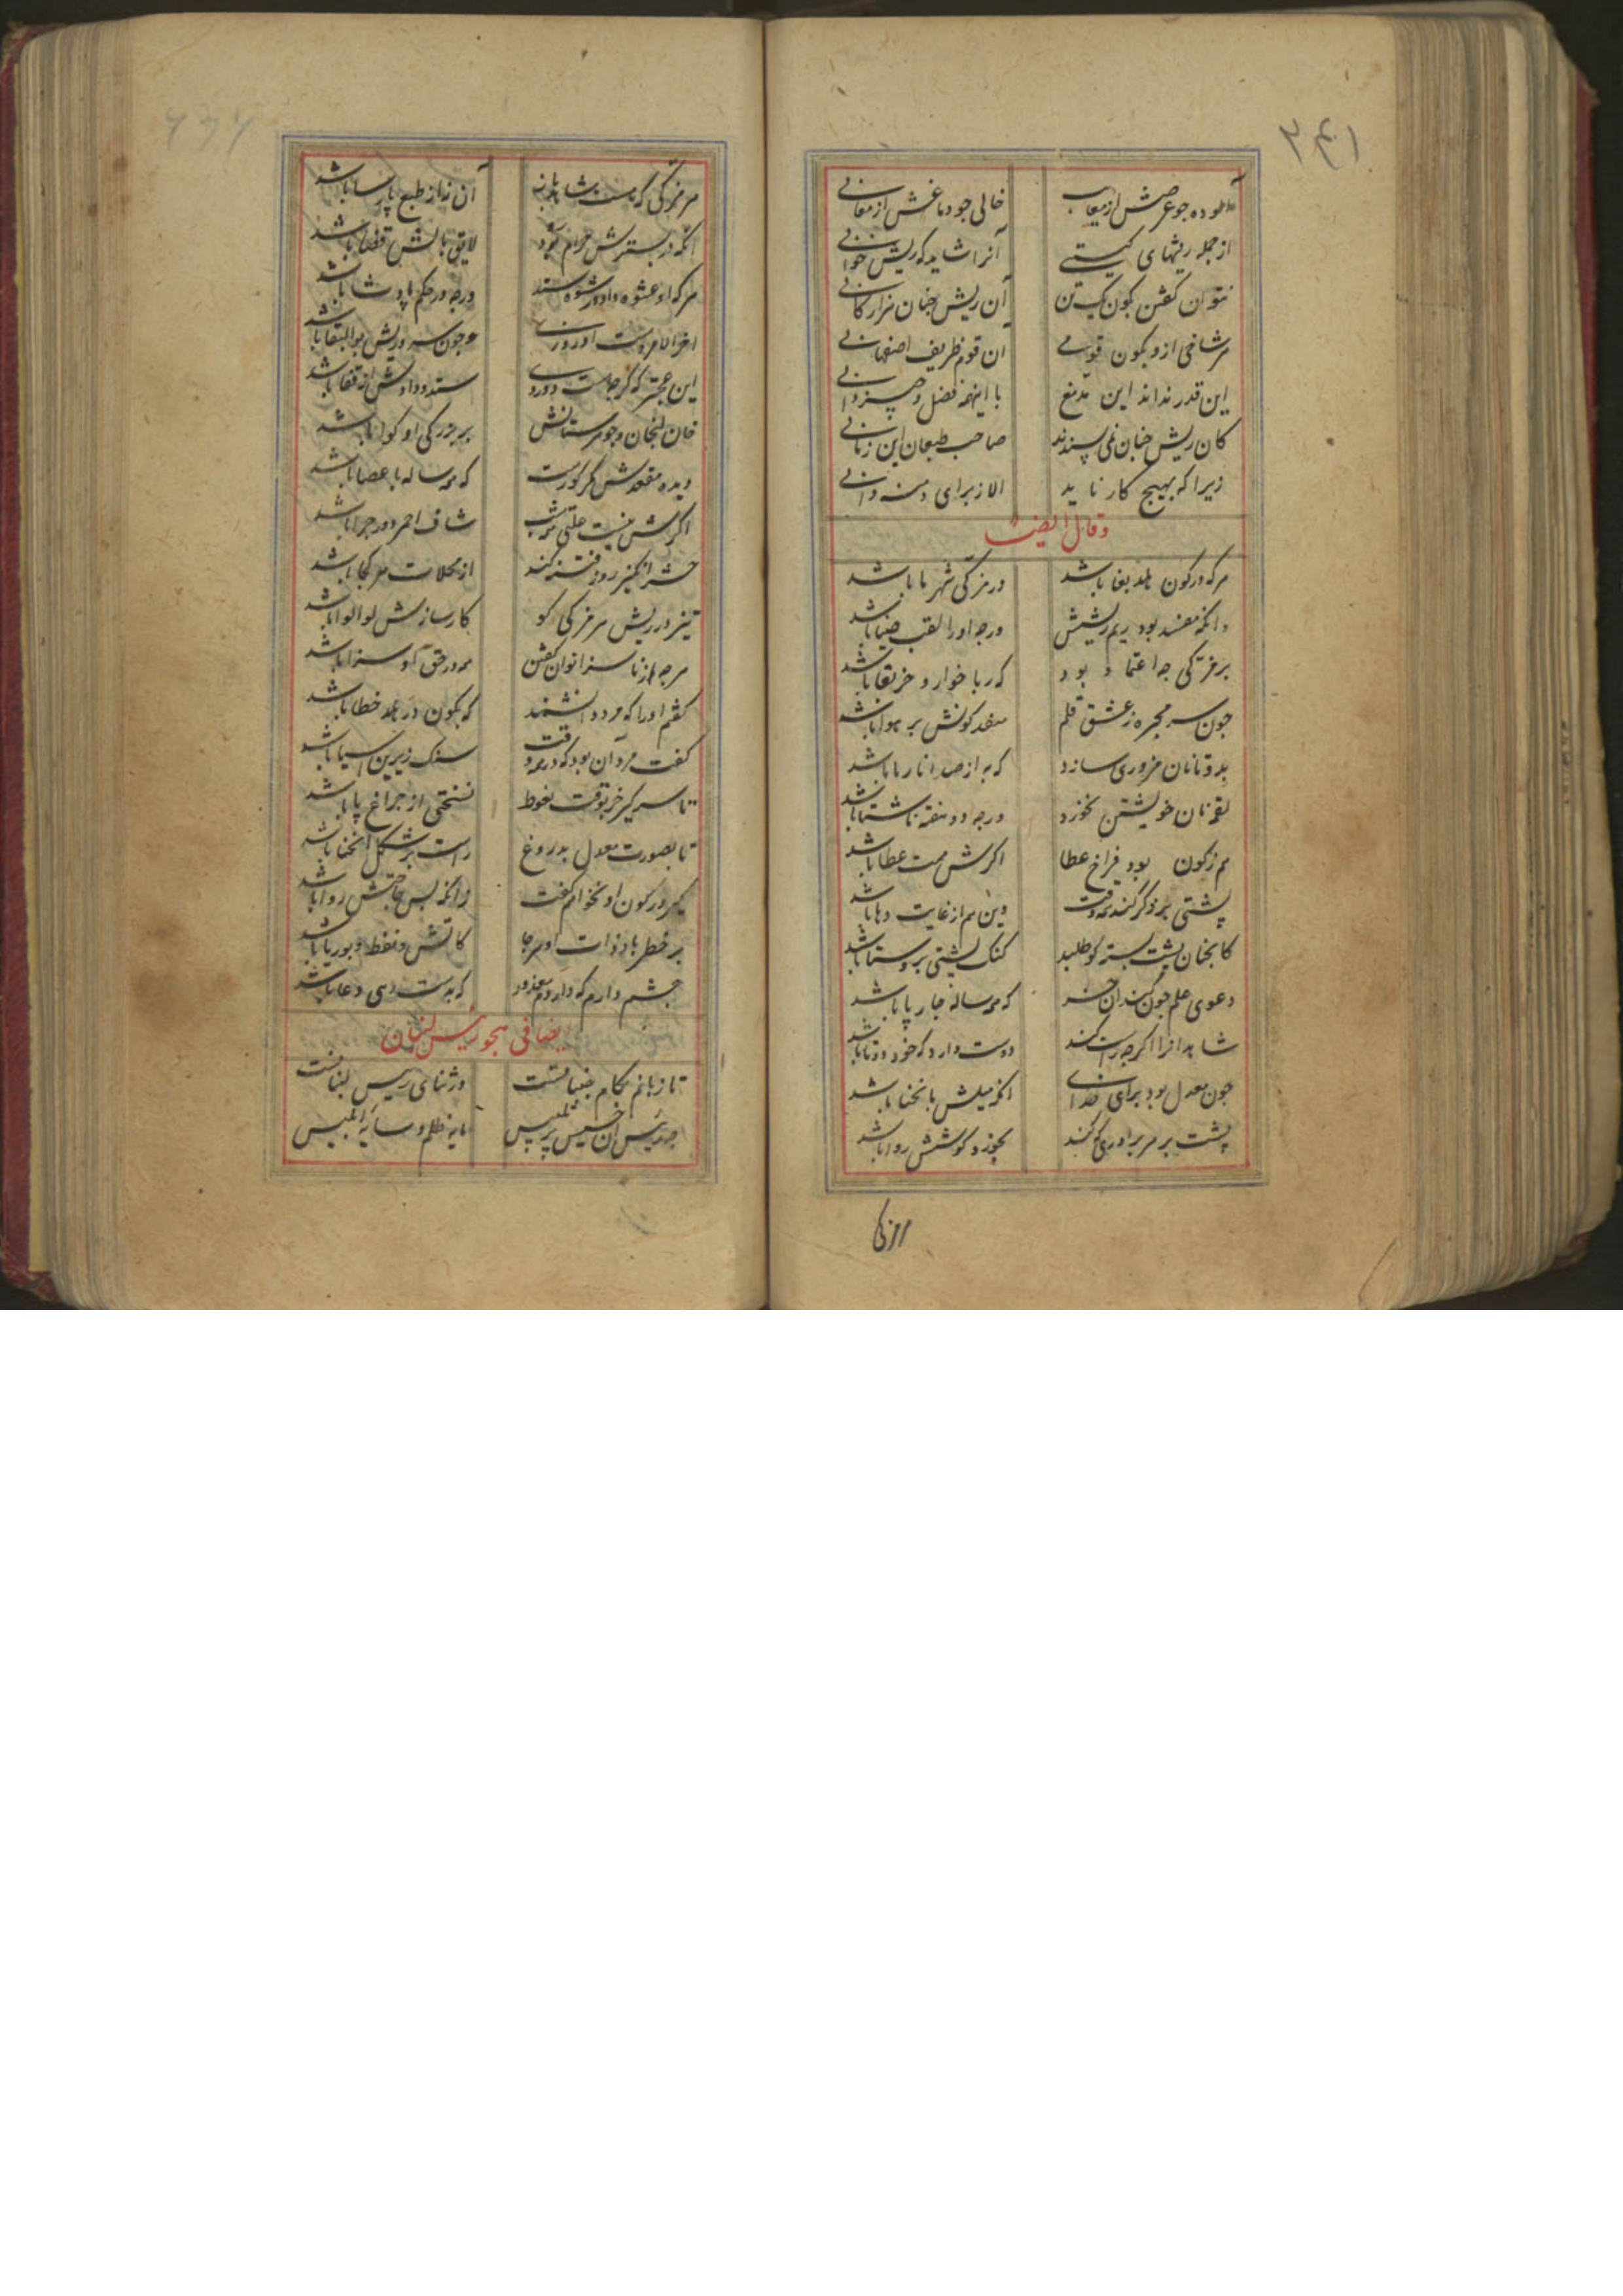 ۳۴۱
آلوده چو عرضش از معایب خالی چو دماغش از معانی
از جمله ریشهای کیتی آنرا شاید که ریش خوانی
نتوان کفتن بکون یک تن آن ریش چنان هزار کانی
هر شاخی ازو بکون قومی آن قوم ظریف اصفهانی
این قدر نداند این مدمغ با اینهمه فضل و چیزدانی
کان ریش چنان نمی پسندند صاحب طبعان این زمانی
زیرا که بهیچ کار ناید الا ز برای
وقال ایضا
هر که در کون بلد بغا باشد ور بزرکی شهر ما باشد
وانکه مفسد بود بریم ریشش ورچه او را لقب ضیا باشد
بر بزرکی چه اعتماد بود که ربا خوار و خر بقا باشد
چون سر محبره ز عشق قلم کونش بر هوا باشد
بدو تا نان مزوری سازد که به از صد انار با باشد
لقمه نان خویشتن نخورد ورچه دو هفته ناشتا باشد
هم ز کون بود فراخ عطا اکرش همت عطا باشد
پشتی هر ذکر کند همه وقت وین هم از غایت دها باشد
کانچنان پشت بسته کو طلبد کنک پشتی بروستا باشد
دعوی علم چون کند آن خر که همه ساله چار پا باشد
شاهد آنرا اکرچه راست کند دوست دارد که خود دوتا باشد
چون معدل بود برای خدای اکر میلش بانحنا باشد
پشت بر هر برادری که کند بخورد کوشش روا باشد
هر بزرکی که هست شاهدباز آن نه از طبع پارسا باشد
آنکه در بسترش حرام بود لایق بالش قضا باشد
هر که او عشوه داد و رشوه ستد ورچه در حکم پادشا باشد
آخر الامر دست او روزی چون سر و ریش بوالبقا باشد
این عجبتر که کرچه هست دوروی ستد و دادش از قفا باشد
خان لنجان و جوهرستانش بر بزرکی او کوا باشد
دیده مقعدش مکر کورست که همه ساله با عصا باشد
اکرش نیست علتی شاف احمر دوا چرا باشد
حشر انکیز روز فتنه کند از محلات هر کجا باشد
تیز در ریش هر بزرکی کو کارسازش لوالوا باشد
هرچه از ناسزا توان کفتن همه در حق او سزا باشد
کفتم او را که مرد دانشمند که بکون در دهد خطا باشد
کفت مرد آن بود که در همه وقت سنک زیرین آسیا باشد
تا سر کیر خر بوقت بغوط نسختی از چراغ پا باشد
تا بصورت معدل بدروغ راست بر شکل انحنا باشد
کیر در کون او نخواهم کفت زانکه بس حاجتش روا باشد
بر خطر باد ذات او هرجا کاتش و نفط و بوریا باشد
چشم دارم که داردم معذور که بدست دعا باشد
ایضا فی هجو رییس لنبان
تا زبانم بکام جنبانست در ثنای رییس لبنانست
چه رییس آن خسیس پر تلبیس مایه ظلم و سایه ابلیس